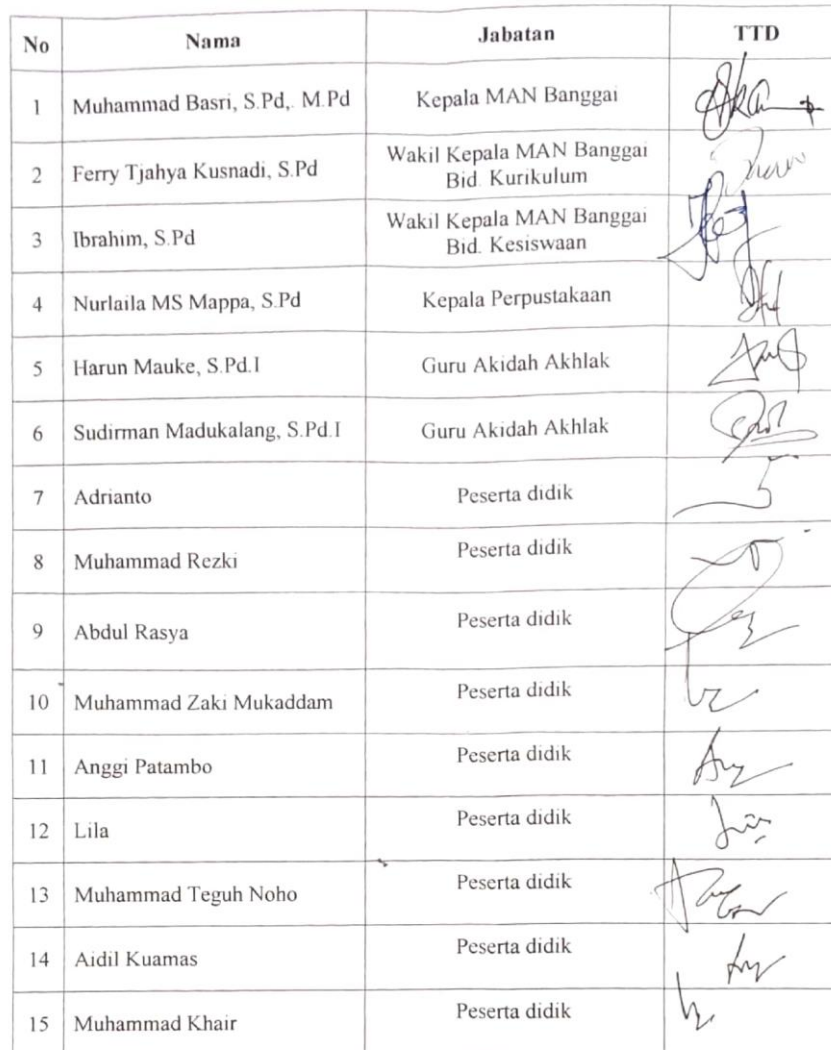 No Nama Jabatan TTD
1 Muhammad Basri, S.Pd,. M.Pd Kepala MAN Banggai
2 Ferry Tjahya Kusnadi, S.Pd Wakil Kepala MAN Banggai
Bid. Kurikulum
3 Ibrahim, S.Pd Wakil Kepala MAN Banggai
Bid. Kesiswaan
4 Nurlaila MS Mappa, S.Pd Kepala Perpustakaan
5 Harun Mauke, S.Pd.I Guru Akidah Akhlak
6 Sudirman Madukalang, S.Pd.I Guru Akidah Akhlak
7 Adrianto Peserta didik
8 Muhammad Rezki Peserta didik
9 Abdul Rasya Peserta didik
10 Muhammad Zaki Mukaddam Peserta didik
11 Anggi Patambo Peserta didik
12 Lila Peserta didik
13 Muhammad Teguh Noho Peserta didik
14 Aidil Kuamas Peserta didik
15 Muhammad Khair Peserta didik